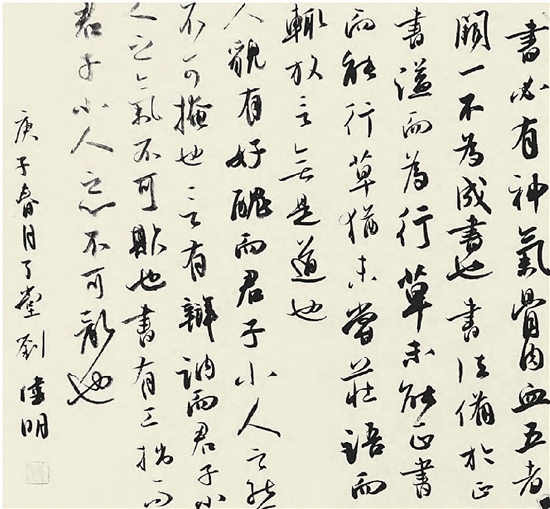 書必有神氣骨肉血五者
闕一不為成書也書法備於正
書溢而為行草未能正書
而能行草猶未嘗莊語而
輒放言無是道也
人貌有好醜而君子小人之態
不可掩也言有辯訥而君子小
人之氣不可欺也書有工拙而
君子小人之心不可亂也
庚子春月了堂劉明